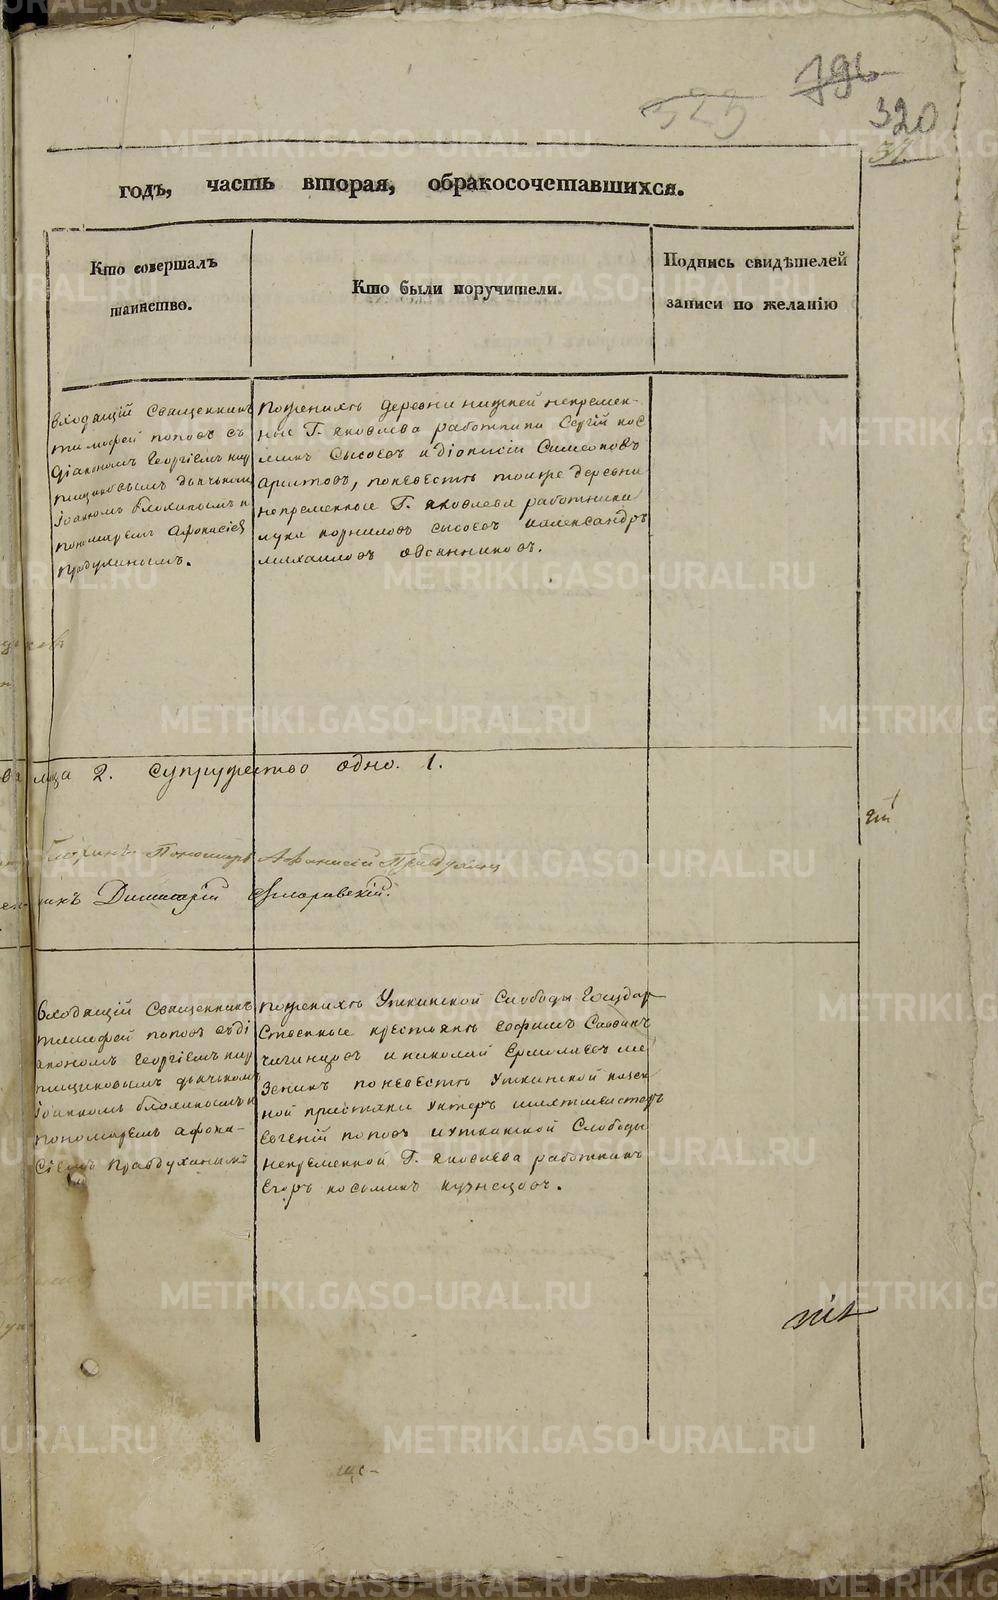 320
годъ, часть вторая, обракосочетавшихся.
Кто совершалъ
таинство.
Кто были поручители.
Подпись свидѣтелей
записи по желанію
входящій Священникъ
тимофей поповъ съ
діакономъ Георгіемъ кир
пищиковымъ дьячькомъ
іоанномъ блохинымъ и
пономаремъ Афонасіемъ
правдухинымъ.
пожениху деревни нижней непремен-
ные Г. яковлева работники Сергій кос
минъ Сысоевъ и діонисій Симеоновъ
, поневестѣ тойже деревни
непременные Г. яковлева работники
лука корниловъ сысоевъ иалександръ
михаиловъ овсянниковъ.
лица 2. супружество одно. 1.
блохинъ Пономарь Афанасій Правдухинъ
Димитрій
входящій Священникъ
тимофей поповъ съ ді
акономъ Георгіемъ кир
пищиковымъ дьячькомъ
іоанномъ блохинымъ и
пономаремъ афона-
сіемъ правдухинымъ
пожениху Уткинской Слободы Государ
ственные крестьяне ефимъ Саввинъ
и николай Ермилаевъ ме
зенинъ поневестѣ Уткинской казен
ной пристани унтеръ шихтмейстеръ
евгеній поповъ иуткинской Слободы
непременной Г. яковлева работникъ
Егоръ косьминъ кузнецовъ.
METRIKI.GASO-URAL.RU